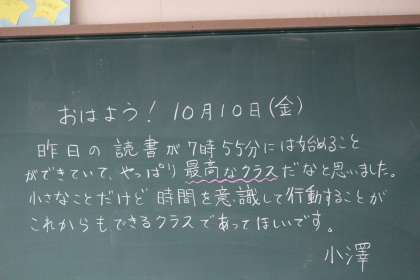 おはよう! 10月10日(金)
昨日の読書が7時55分には始めること
ができていて、やっぱり最高なクラスだなと思いました。
小さなことだけど時間を意識して行動することが
これからもできるクラスであってほしいです。
小澤